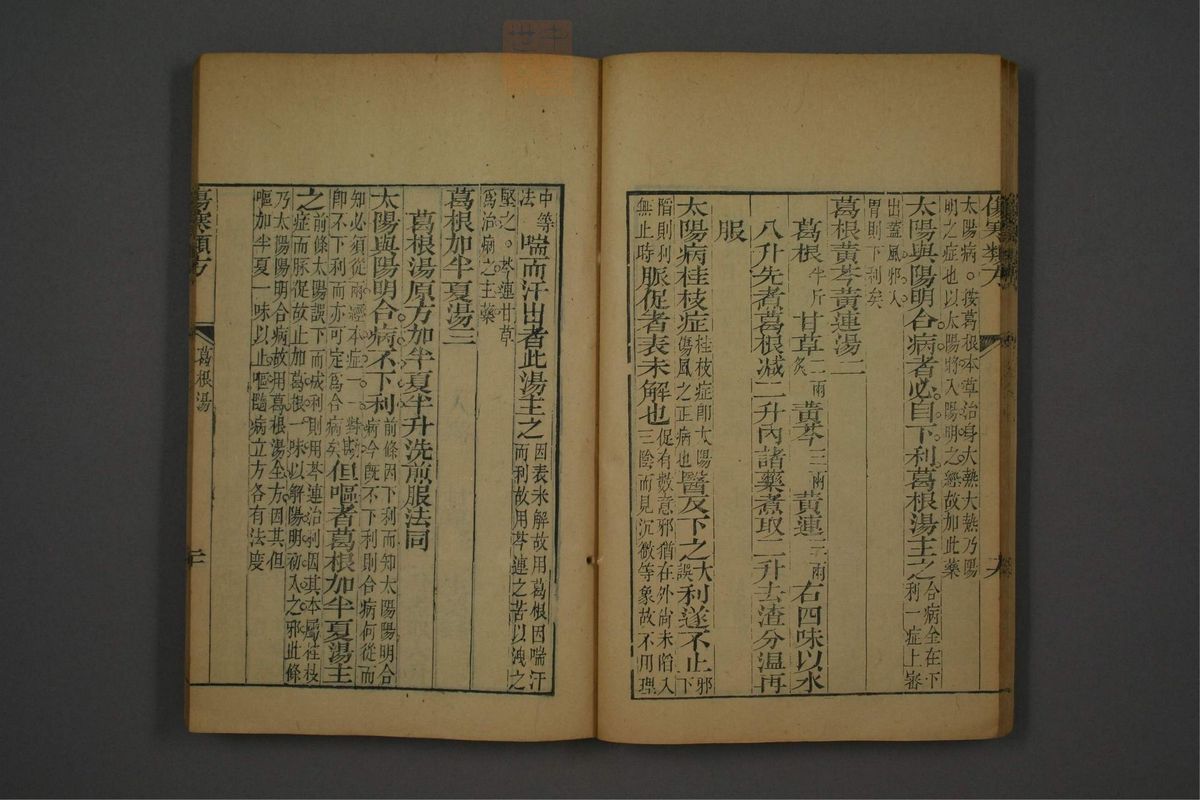 太陽病。按葛根本草治身大熱大熱乃陽
明之症也以太陽將入陽明之經故加此藥
太陽與陽明合病者必自下利葛根湯主之合病全在下
利一症上審
出蓋風邪入
胃則下利矣
葛根黃芩黃連湯二
葛根半斤 甘草二兩炙 黃芩三兩 黃連三兩 右四味以水
八升先煮葛根減二升內諸藥煮取二升去渣分温再
服
太陽病桂枝症桂枝症即太陽
傷風之正病也醫反下之誤大利遂不止邪下
陷則利
無止時脈促者表未解也促有數意邪猶在外尚未陷入
三陰而見沉微等象故不用理
中等
法喘而汗出者此湯主之因表未解故用葛根因喘汗
而利故用芩連之苦以洩之
堅之。芩連甘草
爲治痢之主藥
葛根加半夏湯三
葛根湯原方加半夏半升洗煎服法同
太陽與陽明合病不下利前條因下利而知太陽陽明合
病今既不下利則合病何從而
知必須從兩經本症一一對勘
即不下利而亦可定爲合病矣但嘔者葛根加半夏湯主
之前條太陽誤下而成利則用芩連治利因其本屬桂枝
症而脈促故止加葛根一味以解陽明初入之邪此條
乃太陽陽明合病故用葛根湯全方因其但
嘔加半夏一味以止嘔隨病立方各有法度
傷寒類方
葛根湯